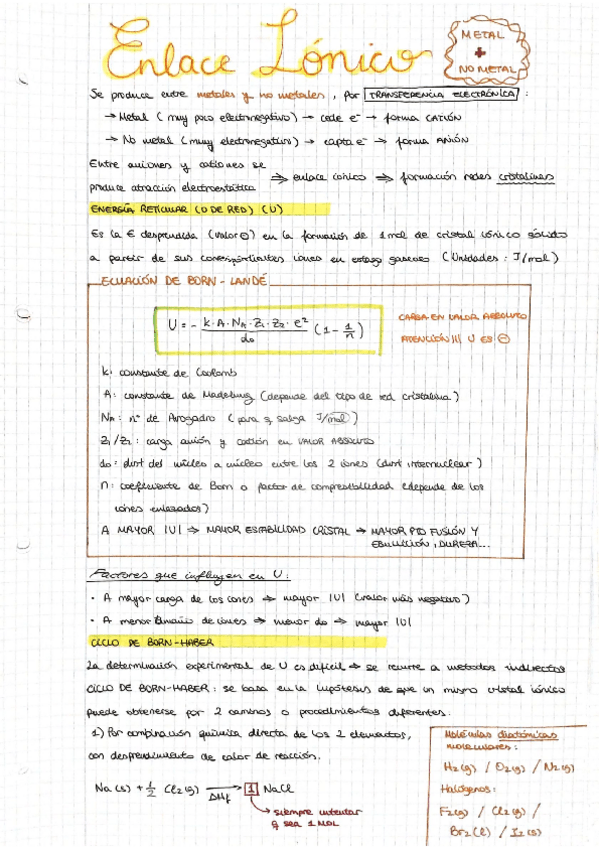 Enlace Iónico
METAL
+
NO METAL
Se produce entre metales y no metales, por TRANSFERENCIA ELECTRÓNICA:
→ Metal (muy poco electronegativo) → cede e⁻ → forma CATIÓN
→ No metal (muy electronegativo) → capta e⁻ → forma ANIÓN
Entre aniones y cationes se
produce atracción electrostática ⇒ enlace iónico ⇒ formación redes cristalinas
ENERGÍA RETICULAR (O DE RED) (U)
Es la E desprendida (valor ⊖) en la formación de 1 mol de cristal iónico sólido
a partir de sus correspondientes iones en estado gaseoso (Unidades: J/mol)
ECUACIÓN DE BORN-LANDÉ
U = - K·A·NA·Z1·Z2·e² / d0 (1 - 1/n)
CARGA EN VALOR ABSOLUTO
ATENCIÓN!!! U ES ⊖
K: constante de Coulomb
A: constante de Madelung (depende del tipo de red cristalina)
NA: nº de Avogadro (para q salga J/mol)
Z1/Z2: carga anión y catión en VALOR ABSOLUTO
d0: dist del núcleo a núcleo entre los 2 iones (dist internuclear)
n: coeficiente de Born o factor de compresibilidad (depende de los
iones enlazados)
A MAYOR |U| ⇒ MAYOR ESTABILIDAD CRISTAL ⇒ MAYOR PTO FUSIÓN Y
EBULLICIÓN, DUREZA...
Factores que influyen en U:
· A mayor carga de los iones ⇒ mayor |U| (valor más negativo)
· A menor tamaño de iones ⇒ menor d0 ⇒ mayor |U|
CICLO DE BORN-HABER
La determinación experimental de U es difícil ⇒ se recurre a métodos indirectos
CICLO DE BORN-HABER: se basa en la hipótesis de que un mismo cristal iónico
puede obtenerse por 2 caminos o procedimientos diferentes:
1) Por combinación química directa de los 2 elementos,
con desprendimiento de calor de reacción.
Na (s) + 1/2 Cl2 (g) → ΔHf 1 NaCl
→ siempre intentar
q sea 1 MOL
Moléculas diatómicas
moleculares:
H2(g) / O2(g) / N2(g)
Halógenos:
F2(g) / Cl2(g) /
Br2(l) / I2(s)